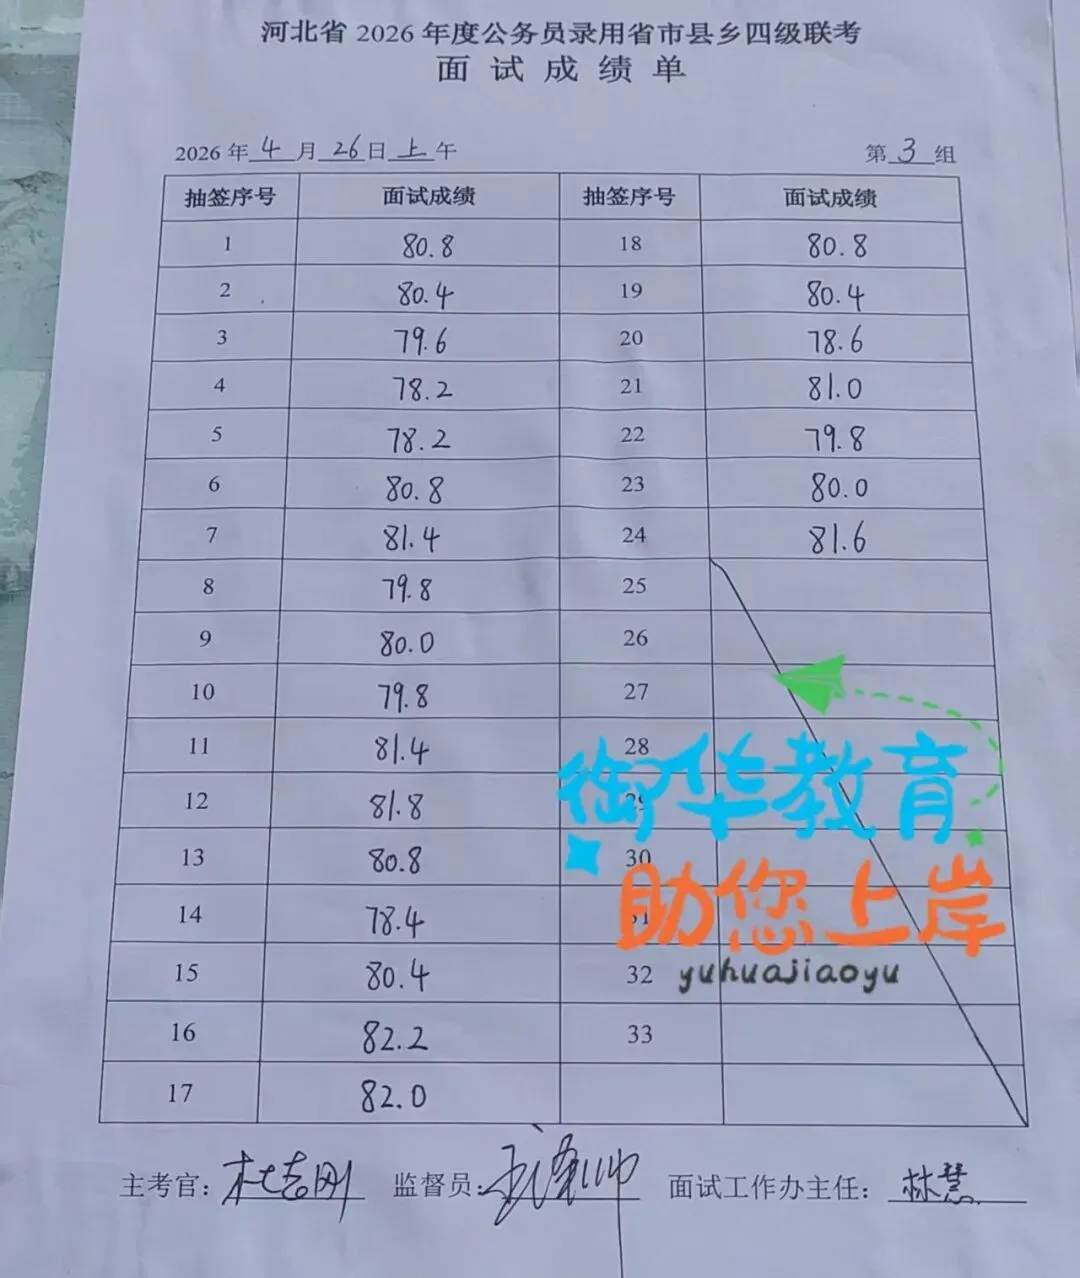 河北省 2026 年度公务员录用省市县乡四级联考
面试成绩单
2026 年 4 月 26 日 上 午 第 3 组
抽签序号 面试成绩 抽签序号 面试成绩
1 80.8 18 80.8
2 80.4 19 80.4
3 79.6 20 78.6
4 78.2 21 81.0
5 78.2 22 79.8
6 80.8 23 80.0
7 81.4 24 81.6
8 79.8 25
9 80.0 26
10 79.8 27
11 81.4 28
12 81.8 29
13 80.8 30
14 78.4 31
15 80.4 32
16 82.2 33
17 82.0
御华教育
助您上岸
yuhuajiaoyu
主考官： 杜志刚 监督员： 面试工作办主任： 林慧